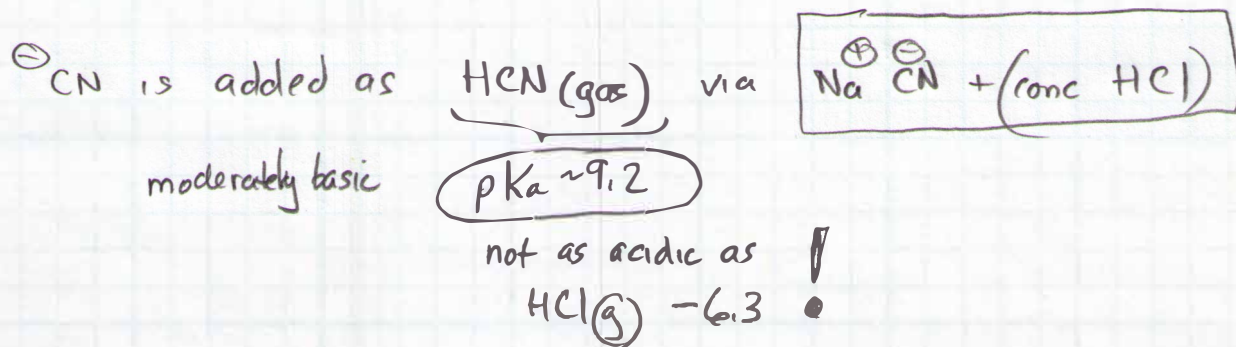 ⊖CN is added as HCN (gas) via Na⊕ CN⊖ + (conc HCl)
moderately basic pKa ~9.2
not as acidic as !
HCl(g) -6.3